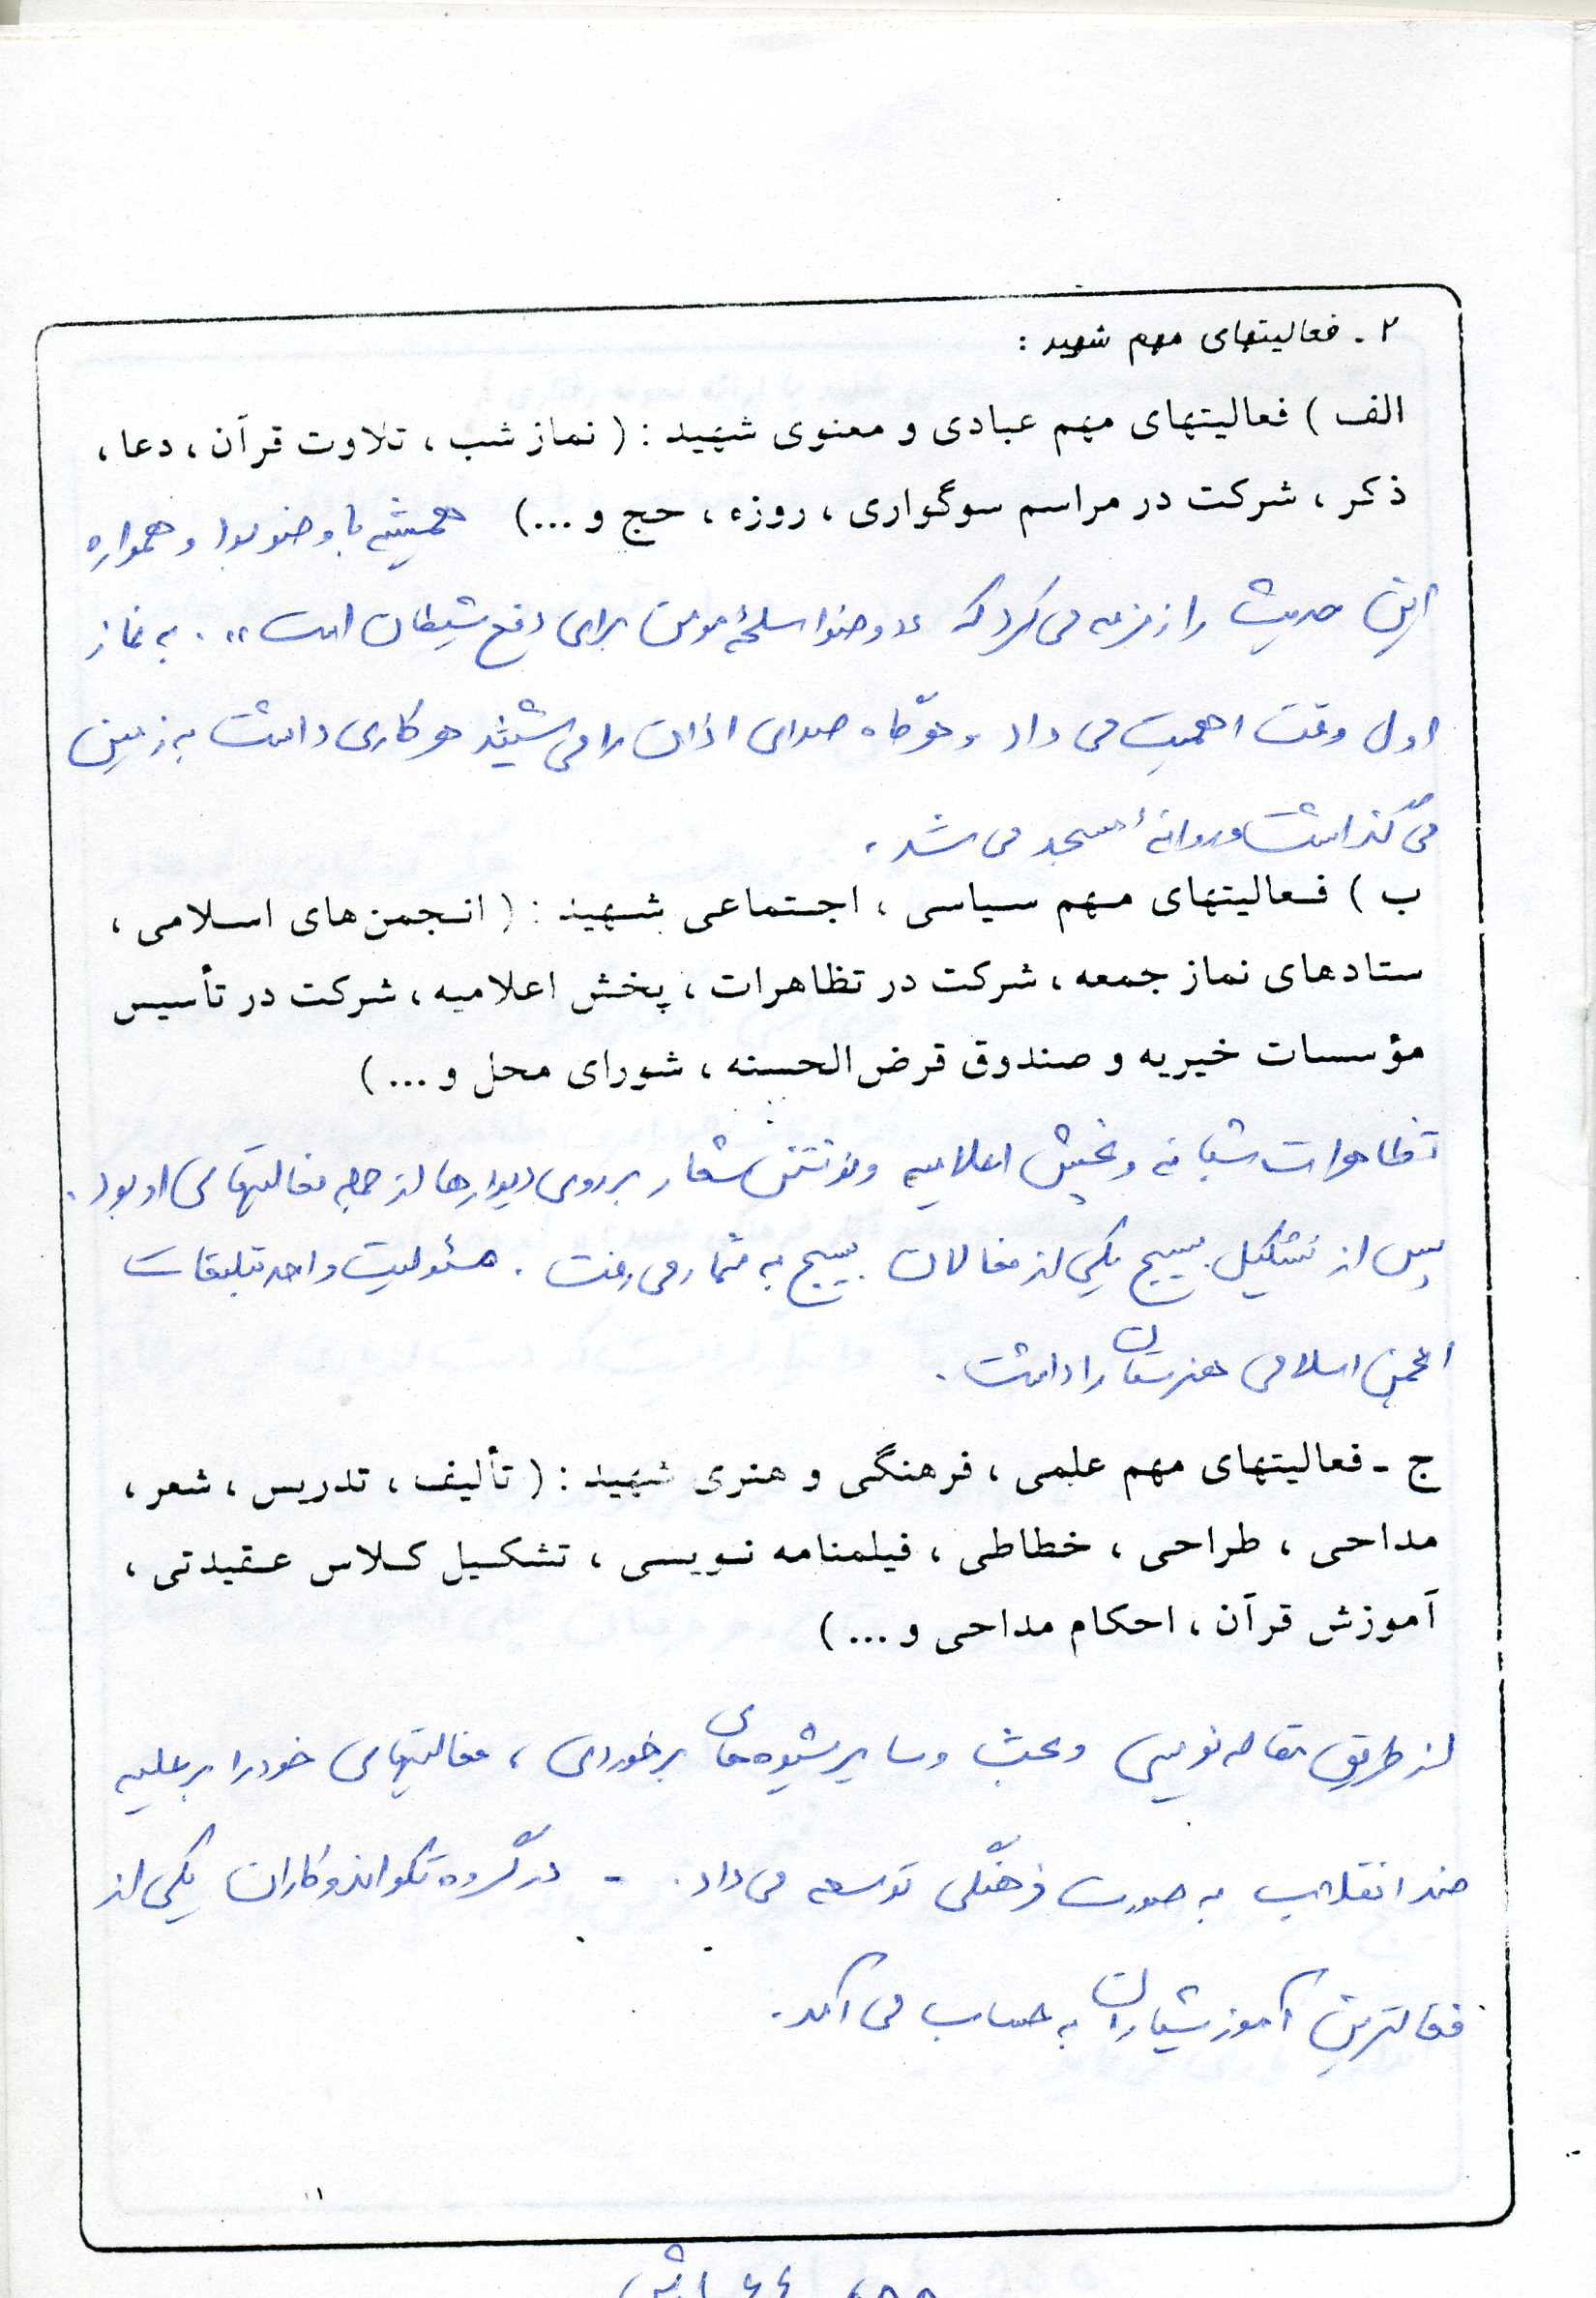 ۲ . فعالیتهای مهم شهید :
الف ) فعالیتهای مهم عبادی و معنوی شهید : ( نماز شب ، تلاوت قرآن ، دعا ،
ذکر ، شرکت در مراسم سوگواری ، روزه ، حج و ...) همیشه با وضو بود و همواره
این حدیث را زمزمه می کرد که «وضو اسلحهٔ مومن برای دفع شیطان است» . به نماز
اول وقت اهمیت می داد و هرگاه صدای اذان را می شنید هر کاری داشت به زمین
می گذاشت و روانهٔ مسجد می شد .
ب ) فعالیتهای مهم سیاسی ، اجتماعی شهید : ( انجمن های اسلامی ،
ستادهای نماز جمعه ، شرکت در تظاهرات ، پخش اعلامیه ، شرکت در تأسیس
مؤسسات خیریه و صندوق قرض الحسنه ، شورای محل و ...)
تظاهرات شبانه و پخش اعلامیه و نوشتن شعار بر روی دیوارها از جمله فعالیتهای او بود .
پس از تشکیل بسیج یکی از فعالان بسیج به شمار می رفت . مسئولیت واحد تبلیغات
انجمن اسلامی هنرستان را داشت .
ج - فعالیتهای مهم علمی ، فرهنگی و هنری شهید : ( تألیف ، تدریس ، شعر ،
مداحی ، طراحی ، خطاطی ، فیلمنامه نویسی ، تشکیل کلاس عقیدتی ،
آموزش قرآن ، احکام مداحی و ...)
از طریق مقاله نویسی و بحث و سایر شیوه های برخوردی ، فعالیتهای خود را بر علیه
ضد انقلاب به صورت فرهنگی توسعه می داد . - در گروه تکواندوکاران یکی از
فعالترین آموزشیاران به حساب می آمد .
۱۱